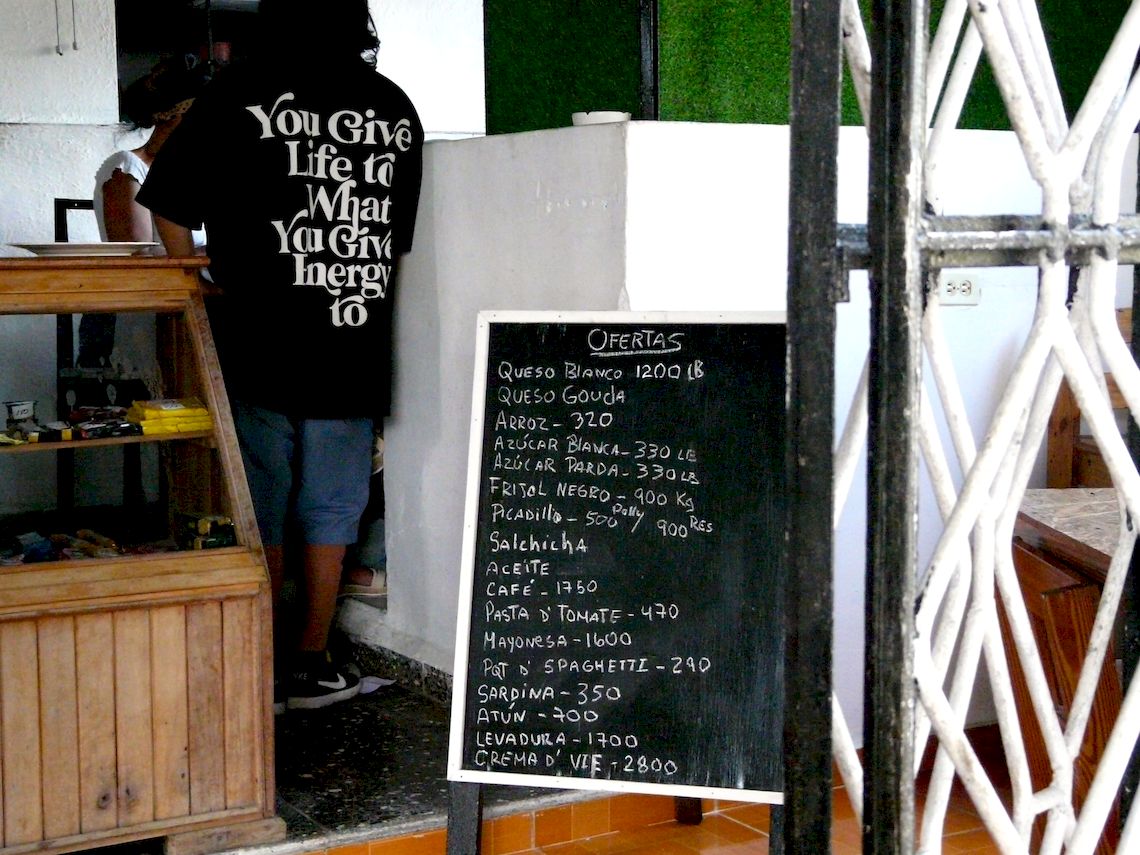 You Give
Life to
What
You Give
Energy
to
OFERTAS
QUESO BLANCO 1200 LB
QUESO GOUDA
ARROZ - 320
AZÚCAR BLANCA - 330 LB
AZÚCAR PARDA - 330 LB
FRIJOL NEGRO - 900 Kg
PICADILLO - 500 Polly / 900 RES
SALCHICHA
ACEITE
CAFÉ - 1750
PASTA D' TOMATE - 470
MAYONESA - 1600
PQT D' SPAGHETTI - 290
SARDINA - 350
ATÚN - 700
LEVADURA - 1700
CREMA D' VIE - 2800